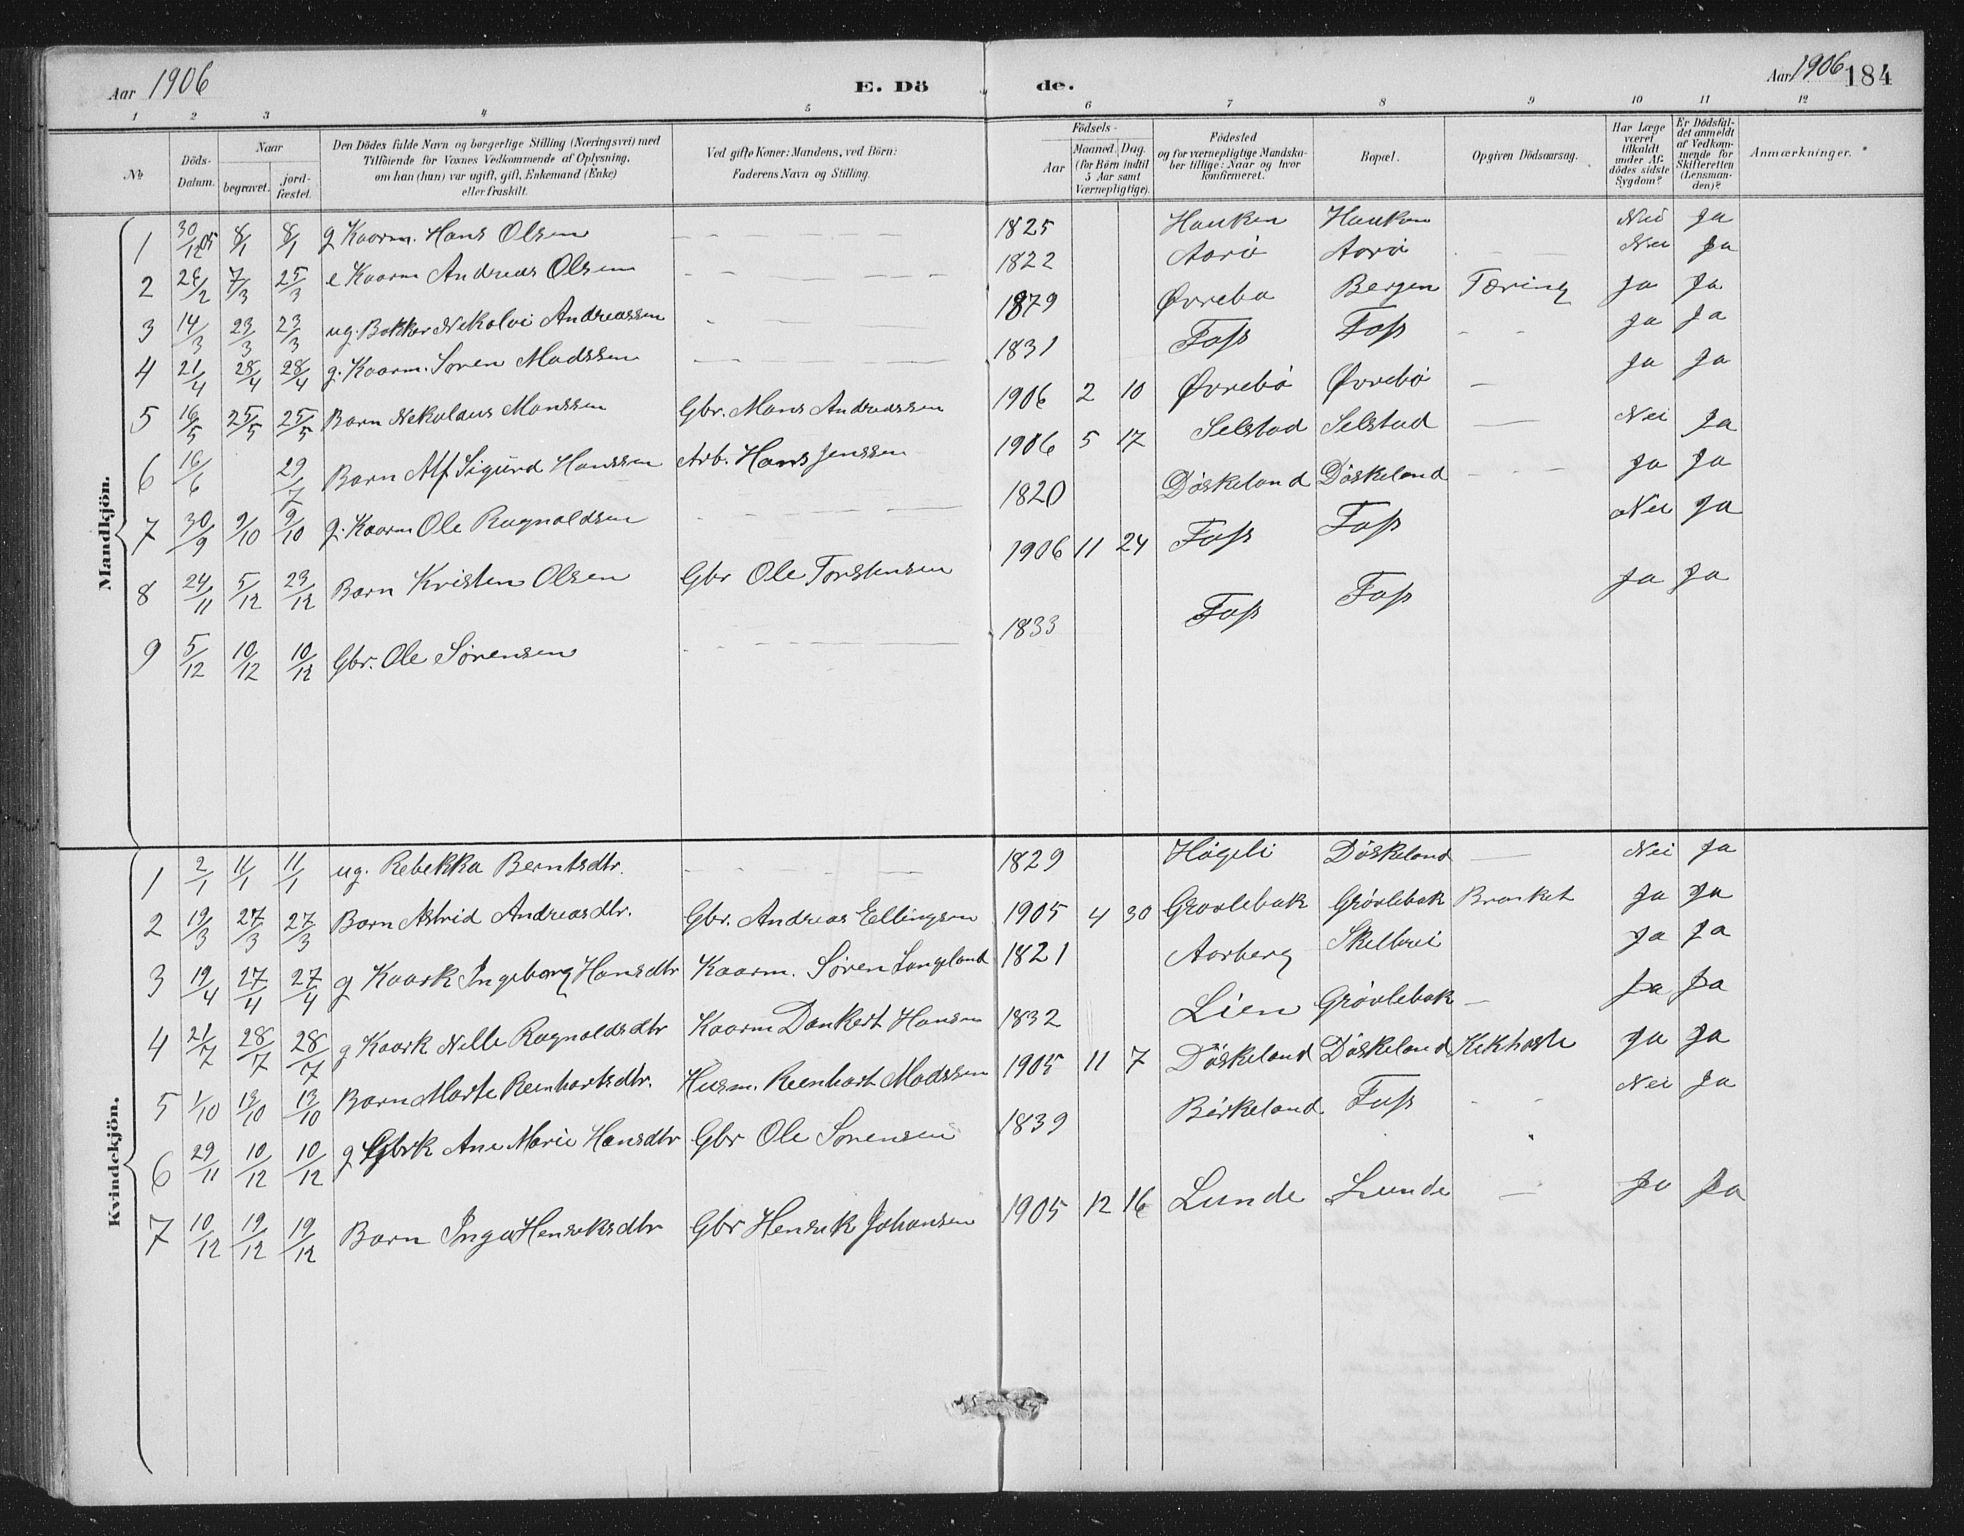 Aar 1906 E. Dö de. Aar 1906 184
1 2 3 4 5 6 7 8 9 10 11 12
№ Döds-Datum. Naar begravet. jord-fæstet. Den Dödes fulde Navn og borgerlige Stilling (Næringsvei) med Tilföiende for Voxnes Vedkommende af Oplysning, om han (hun) var ugift, gift, Enkemand (Enke) eller fraskilt. Ved gifte Koner: Mandens, ved Börn: Faderens Navn og Stilling. Födsels- Aar Maaned. Dag. (for Börn indtil 5 Aar samt Værnepligtige). Födested og for værnepligtige Mandska-ber tillige: Naar og hvor konfirmeret. Bopæl. Opgiven Dödsaarsag. Har Læge været tilkaldt under Af-dödes sidste Sygdom? Er Dödsfal-det anmeldt af Vedkom-mende for Skifteretten (Lensman-den)? Anmærkninger.
Mandkjön.
1 30/12 05 8/1 8/1 g Kaarm. Hans Olsen 1825 Hauken Hauken Nei Ja
2 24/2 7/3 25/3 e Kaarm Andreas Olsen 1822 Aarö Aarö Nei Ja
3 14/3 23/3 23/3 ug. Bakker Nikolai Andreassen 1879 Øvrebø Bergen Tæring Ja Ja
4 21/4 28/4 28/4 g. Kaarm. Sören Madssen 1831 Foss Foss Ja Ja
5 16/5 25/5 25/5 Barn Nekolaus Monssen Gbr. Mons Andreassen 1906 2 10 Øvrebö Øvrebö Ja Ja
6 16/6 29/7 Barn Alf Sigurd Hanssen Arb. Hans Jenssen 1906 5 17 Selstad Selstad Nei Ja
7 30/9 9/10 9/10 g. Kaarm Ole Ragnaldsen 1820 Döskeland Döskeland Ja Ja
8 24/11 5/12 23/12 Barn Kristen Olsen Gbr Ole Torstensen 1906 11 24 Foss Foss Nei Ja
9 5/12 10/12 10/12 Gbr. Ole Sörensen 1833 Foss Foss Ja Ja
Kvindekjön.
1 2/1 11/1 11/1 ug. Rebekka Berntsdtr. 1829 Högeli Döskeland Nei Ja
2 19/3 27/3 27/3 Barn Astrid Andreasdtr. Gbr. Andreas Ellingsen 1905 4 30 Grövlebak Grövlebak Bronket Ja Ja
3 19/4 27/4 27/4 g Kaark Ingeborg Hansdtr Kaarm. Sören Langeland 1821 Aarberg Skilbrei Ja Ja
4 21/7 28/7 28/7 g Kaark Nille Ragnaldsdtr Kaarm Dankert Hansen 1832 Lien Grövlebak Ja Ja
5 1/10 13/10 13/10 Barn Marte Reinhartsdtr. Husm. Reinhart Madssen 1905 11 7 Döskeland Döskeland Kikhoste Ja Ja
6 29/11 10/12 10/12 g Gbrk Ane Marie Hansdtr Gbr Ole Sörensen 1839 Birkeland Foss Nei Ja
7 10/12 19/12 19/12 Barn Inga Henriksdtr Gbr Henrik Johansen 1905 12 16 Lunde Lunde Ja Ja